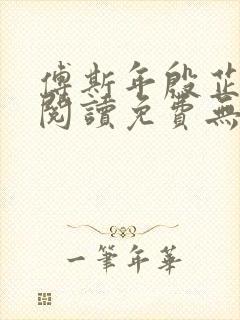 傅斯年殷芷
閱讀免費無
一筆年華